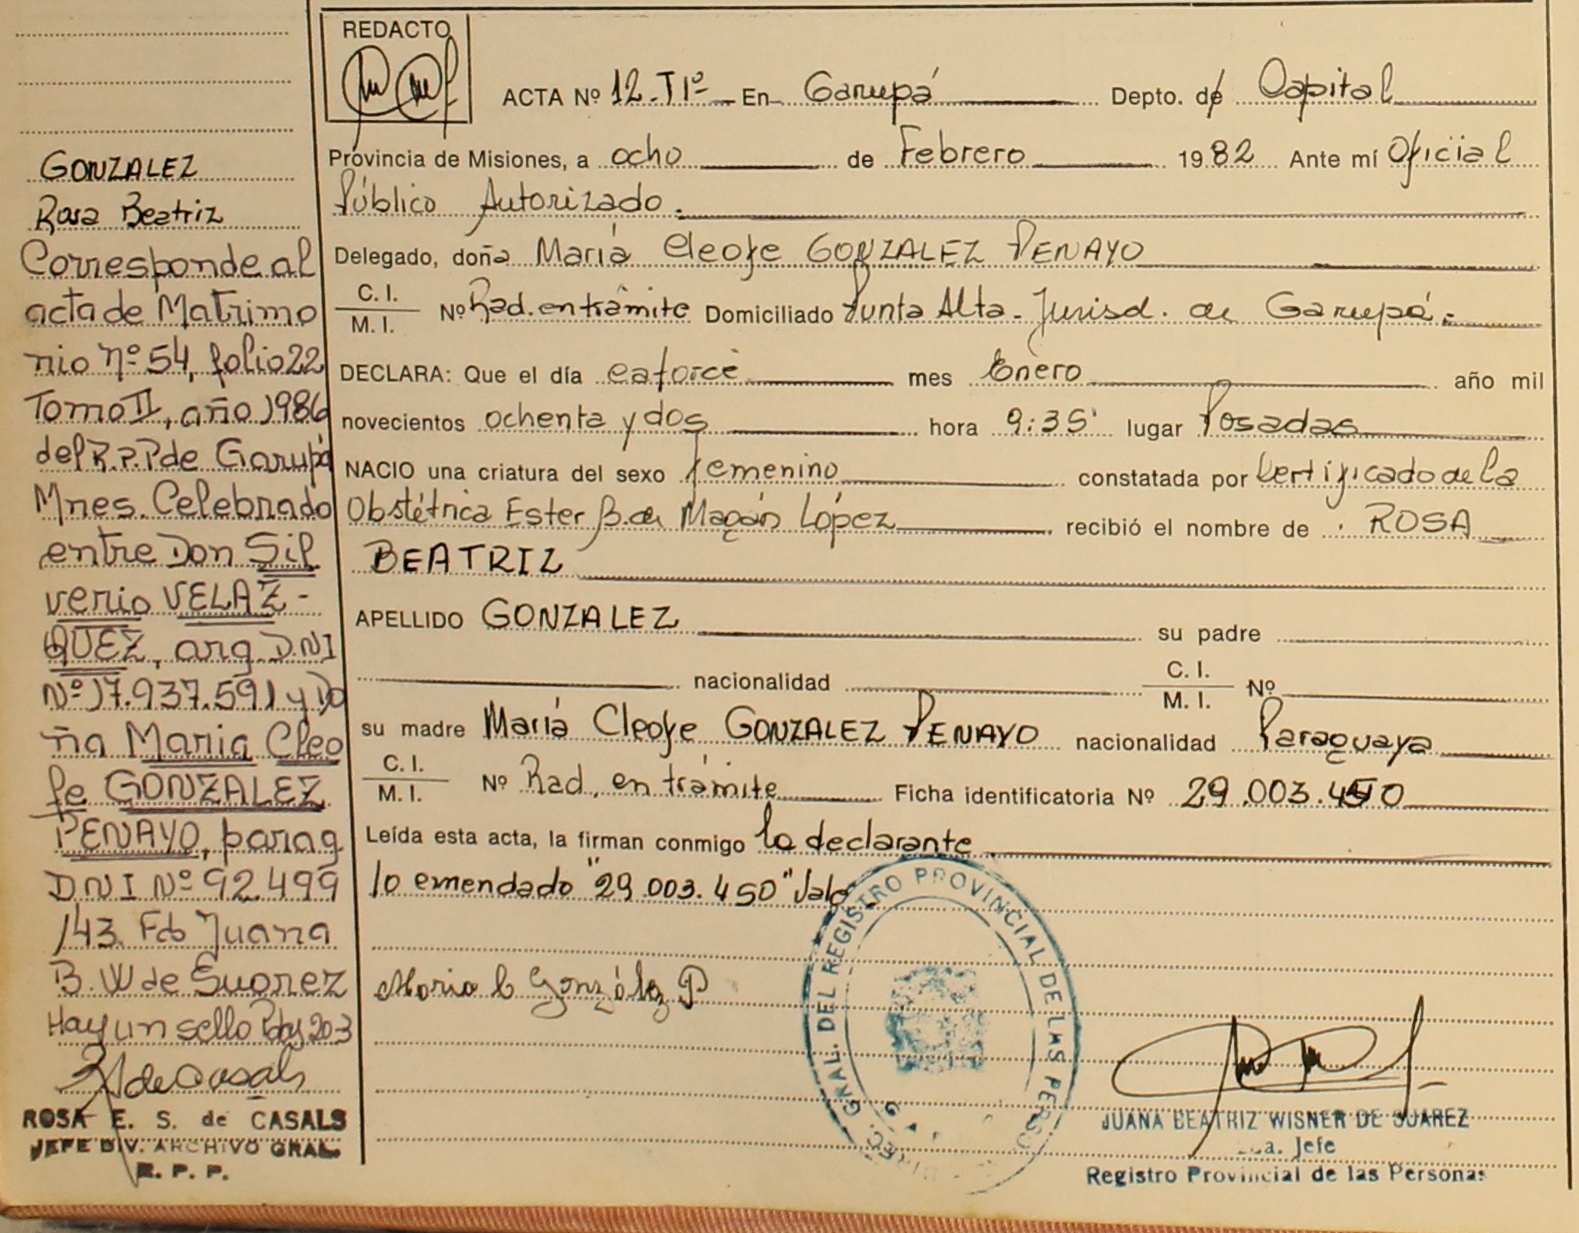 REDACTO
ACTA Nº 12-T1º En Garupá Depto. de Capital
Provincia de Misiones, a ocho de Febrero 1982 Ante mí Oficial
Público Autorizado.
Delegado, doña María Cleofe GONZALEZ PENAYO
C. I.
M. I.
Nº Rad. en trámite Domiciliado Punta Alta - Jurisd. de Garupá.
DECLARA: Que el día catorce mes Enero año mil
novecientos ochenta y dos hora 9:35' lugar Posadas
NACIO una criatura del sexo femenino constatada por Certificado de la
Obstétrica Ester B. de Magán López recibió el nombre de ROSA
BEATRIZ
APELLIDO GONZALEZ su padre
nacionalidad C. I.
M. I. Nº
su madre María Cleofe GONZALEZ PENAYO nacionalidad Paraguaya
C. I.
M. I.
Nº Rad. en trámite Ficha identificatoria Nº 29.003.450
Leída esta acta, la firman conmigo la declarante
lo emendado "29.003.450" Vale.
Maria C González P
GRAL. DEL REGISTRO PROVINCIAL DE LAS PERSO
JUANA BEATRIZ WISNER DE SUAREZ
Jefe
Registro Provincial de las Personas
GONZALEZ
Rosa Beatriz
Corresponde al
acta de Matrimo
nio nº 54, folio 22
Tomo II, año 1986
del R.P.P de Garupá
Mnes. Celebrado
entre Don Sil
verio VELAZ-
QUEZ, arg. D.N.I
Nº 17.937.591 y Do
ña Maria Cleo
fe GONZALEZ
PENAYO, parag
DNI Nº 92.499
143. Fdo Juana
B. W de Suarez
Hay un sello Pdas 203
de Casals
ROSA E. S. de CASALS
JEFE DIV. ARCHIVO GRAL.
R. P. P.